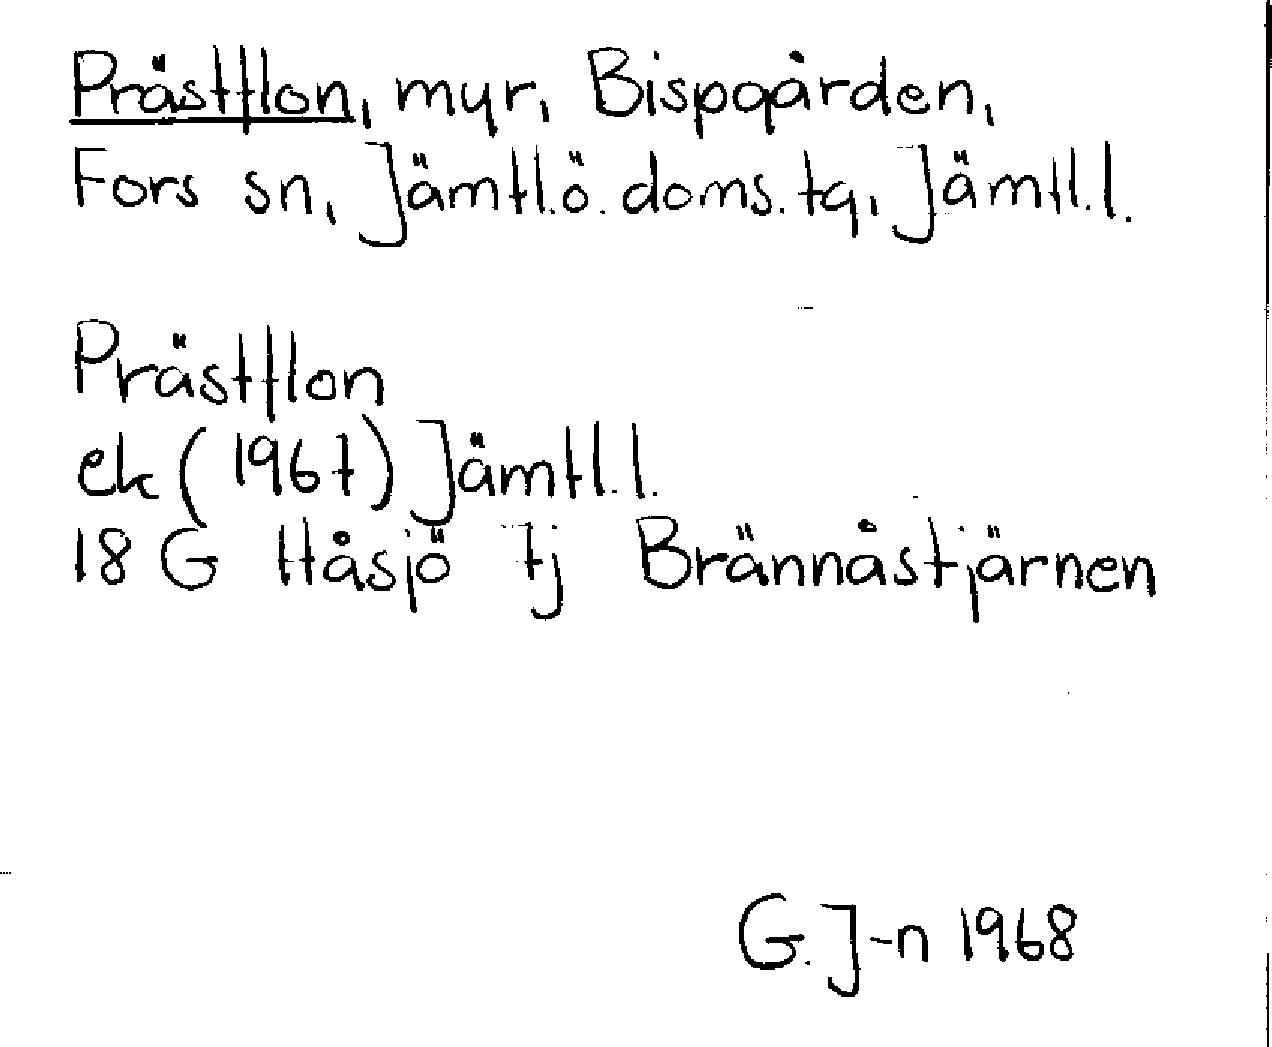 Prästflon, myr, Bispgården,
Fors sn, Jämtl.ö.doms.tg, Jämtl.l.
Prästflon
ek (1967) Jämtl.l.
18 G Håsjö fj Brännåstjärnen
G.J-n 1968